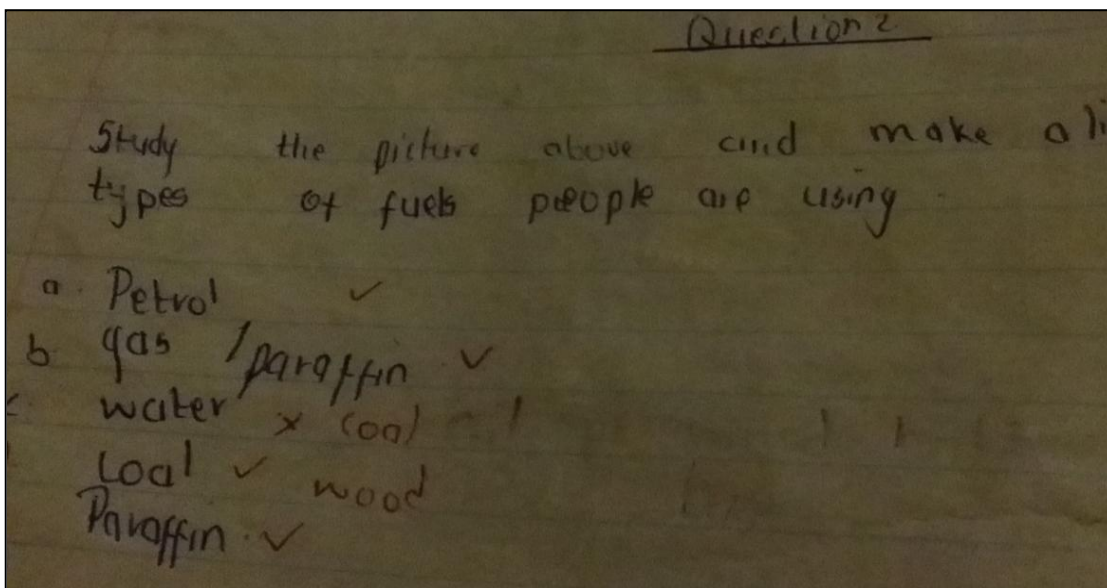 Question 2
Study the picture above and make a li
types of fuels people are using.
a. Petrol ✓
b. gas / paraffin ✓
water x coal
coal ✓ wood
Paraffin. ✓